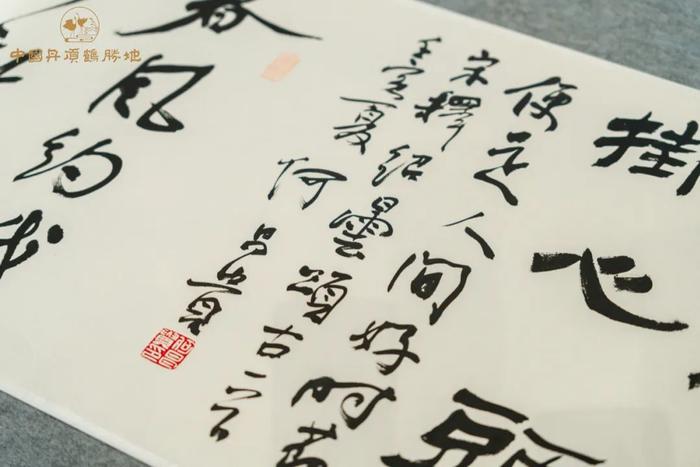 中國丹頂鶴勝地
掛心頭
便是人間好時
宋釋紹曇頌古一
壬寅夏何
春風約我